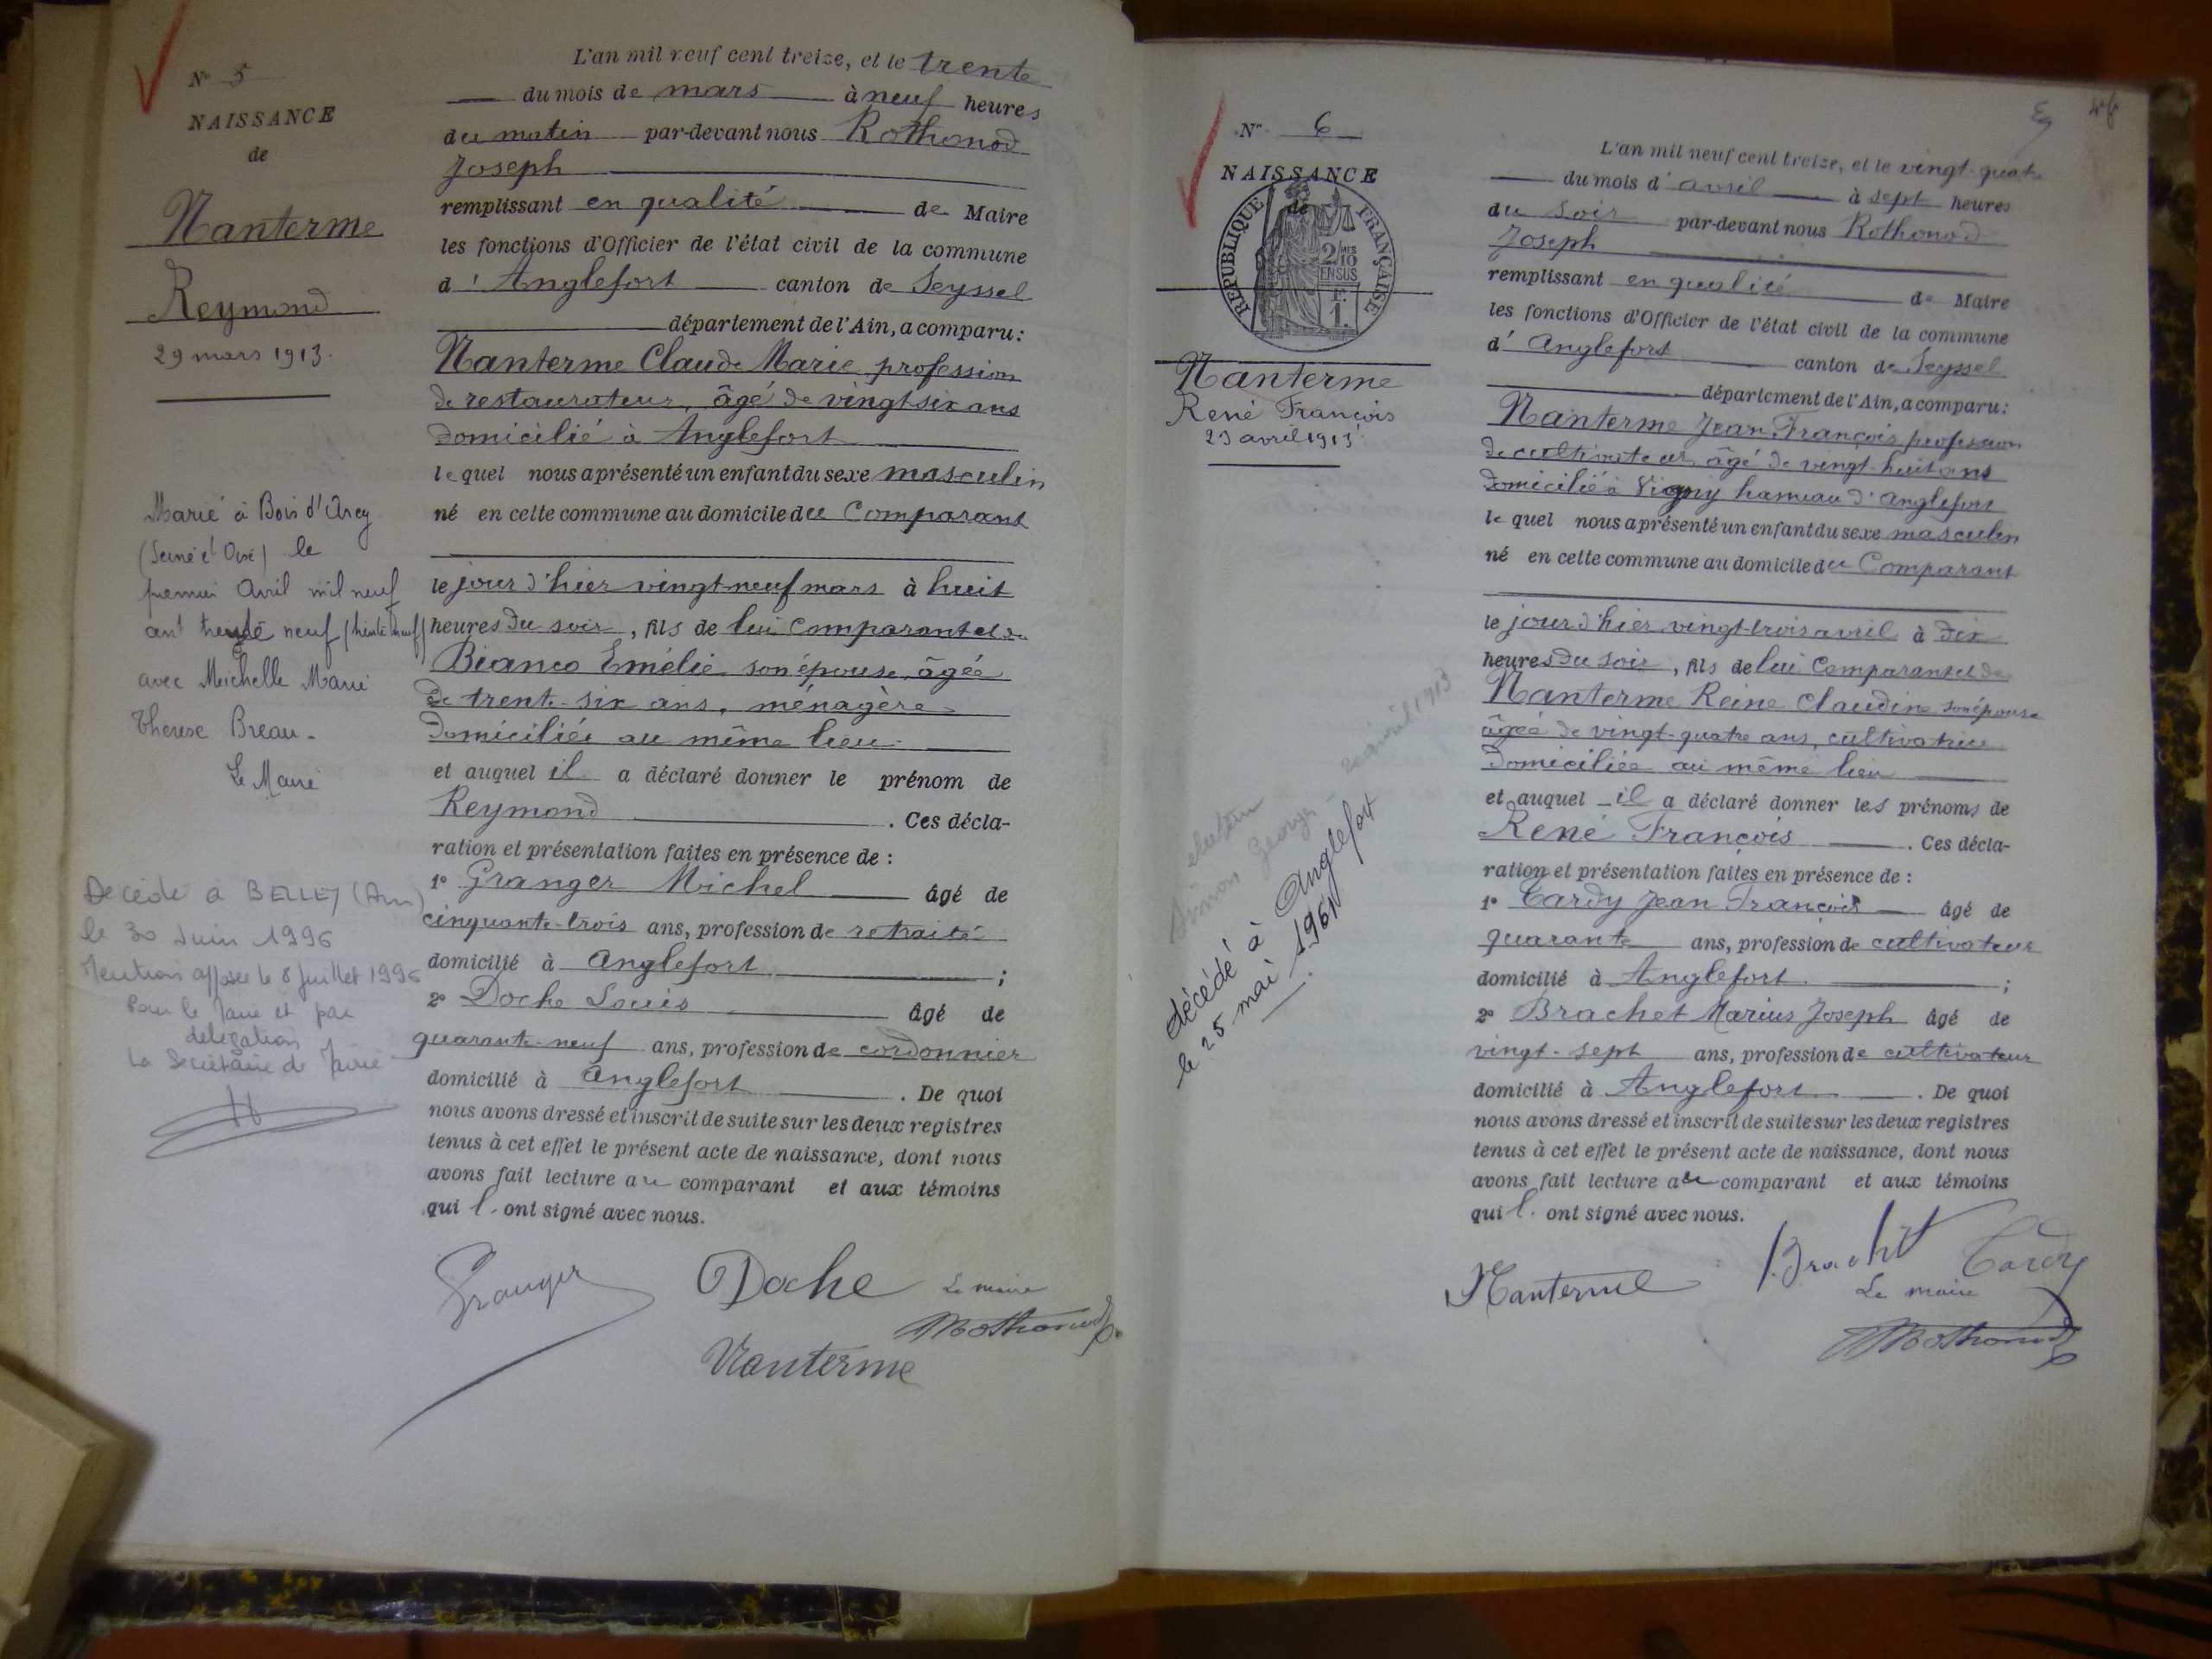 N° 5
NAISSANCE
de
Nanterme
Reymond
29 mars 1913.
Marié à Bois d'Arcy
(Seine et Oise) le
premier Avril mil neuf
cent trente neuf (trente neuf)
avec Michelle Marie
Therese Breau.
Le Maire
Décédé à BELLEY (Ain)
le 30 Juin 1996
Mention apposée le 8 Juillet 1996
Pour le Maire et par
délégation
La Secrétaire de Mairie
L'an mil neuf cent treize, et le trente
du mois de mars à neuf heures
du matin par-devant nous Rothonod
Joseph
remplissant en qualité de Maire
les fonctions d'Officier de l'état civil de la commune
d' Anglefort canton de Seyssel
département de l'Ain, a comparu:
Nanterme Claude Marie profession
de restaurateur, âgé de vingt-six ans
domicilié à Anglefort
lequel nous a présenté un enfant du sexe masculin
né en cette commune au domicile du Comparant
le jour d'hier vingt-neuf mars à huit
heures du soir, fils de lui Comparant et de
Bianco Emélie son épouse, âgée
de trente-six ans, ménagère
domiciliée au même lieu
et auquel il a déclaré donner le prénom de
Reymond. Ces décla-
ration et présentation faites en présence de :
1° Granger Michel âgé de
cinquante-trois ans, profession de retraité
domicilié à Anglefort ;
2° Doche Louis âgé de
quarante-neuf ans, profession de cordonnier
domicilié à Anglefort. De quoi
nous avons dressé et inscrit de suite sur les deux registres
tenus à cet effet le présent acte de naissance, dont nous
avons fait lecture au comparant et aux témoins
qui l'ont signé avec nous.
Granger
Doche
Le maire
Rothonod
Nanterme
N° 6
NAISSANCE
de
RÉPUBLIQUE FRANÇAISE
2/10
MES
EN SUS
F.
1.
Nanterme
René François
23 avril 1913.
Simon Georges
20 avril 1913
décédé à Anglefort
le 25 mai 1961
L'an mil neuf cent treize, et le vingt-quatre
du mois d'avril à sept heures
du soir par-devant nous Rothonod
Joseph
remplissant en qualité de Maire
les fonctions d'Officier de l'état civil de la commune
d' Anglefort canton de Seyssel
département de l'Ain, a comparu:
Nanterme Jean François profession
de cultivateur âgé de vingt-huit ans
domicilié à Vigny hameau d'Anglefort
lequel nous a présenté un enfant du sexe masculin
né en cette commune au domicile du Comparant
le jour d'hier vingt-trois avril à dix
heures du soir, fils de lui Comparant et de
Nanterme Reine Claudine son épouse
âgée de vingt-quatre ans, cultivatrice
domiciliée au même lieu
et auquel il a déclaré donner les prénoms de
René François. Ces décla-
ration et présentation faites en présence de :
1° Tardy Jean François âgé de
quarante ans, profession de cultivateur
domicilié à Anglefort ;
2° Brachet Marius Joseph âgé de
vingt-sept ans, profession de cultivateur
domicilié à Anglefort. De quoi
nous avons dressé et inscrit de suite sur les deux registres
tenus à cet effet le présent acte de naissance, dont nous
avons fait lecture au comparant et aux témoins
qui l'ont signé avec nous.
Nanterme
Brachet
Tardy
Le maire
Rothonod